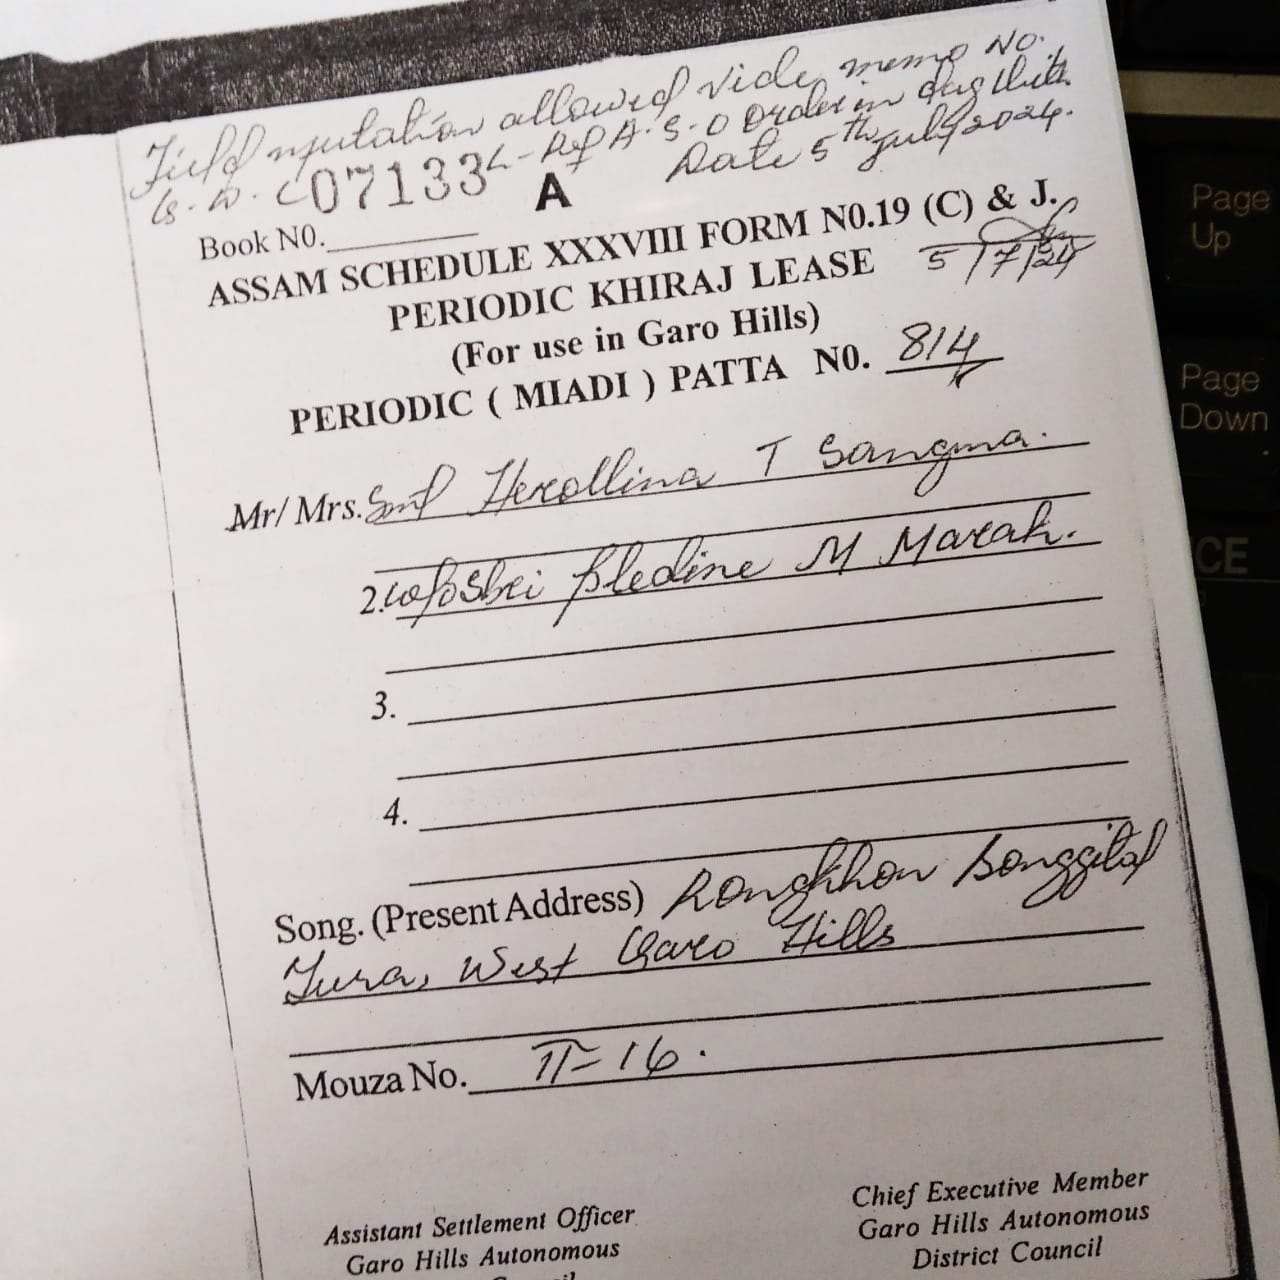 Field mutation allowed vide memo No.
07133 A.S.O Order in
Date 5th July 2024.
A
Book N0.
ASSAM SCHEDULE XXXVIII FORM N0.19 (C) & J.
5/7/24
PERIODIC KHIRAJ LEASE
(For use in Garo Hills)
PERIODIC ( MIADI ) PATTA N0. 814
Mr/ Mrs. Smt Herollina T Sangma.
2. w/o Shri Bledine M Marak.
3.
4.
Song. (Present Address) Rongkhon Songgital
Tura, West Garo Hills
Mouza No. II-16.
Assistant Settlement Officer
Garo Hills Autonomous
Council
Chief Executive Member
Garo Hills Autonomous
District Council
Page
Up
Page
Down
CE